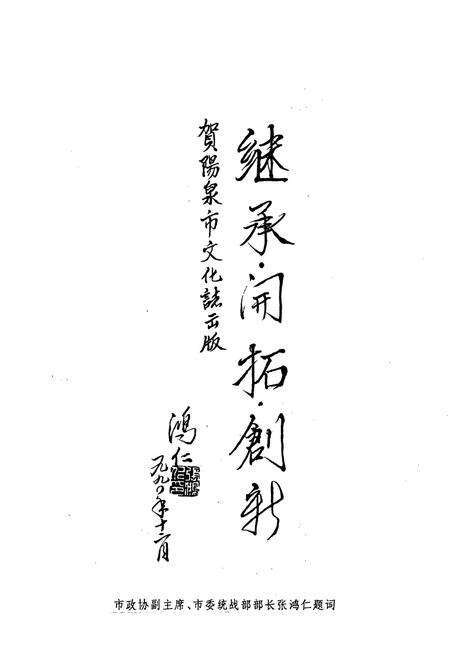 继承·開拓·創新
賀陽泉市文化誌出版
鸿仁
一九九〇年十二月
市政协副主席、市委统战部部长张鸿仁题词